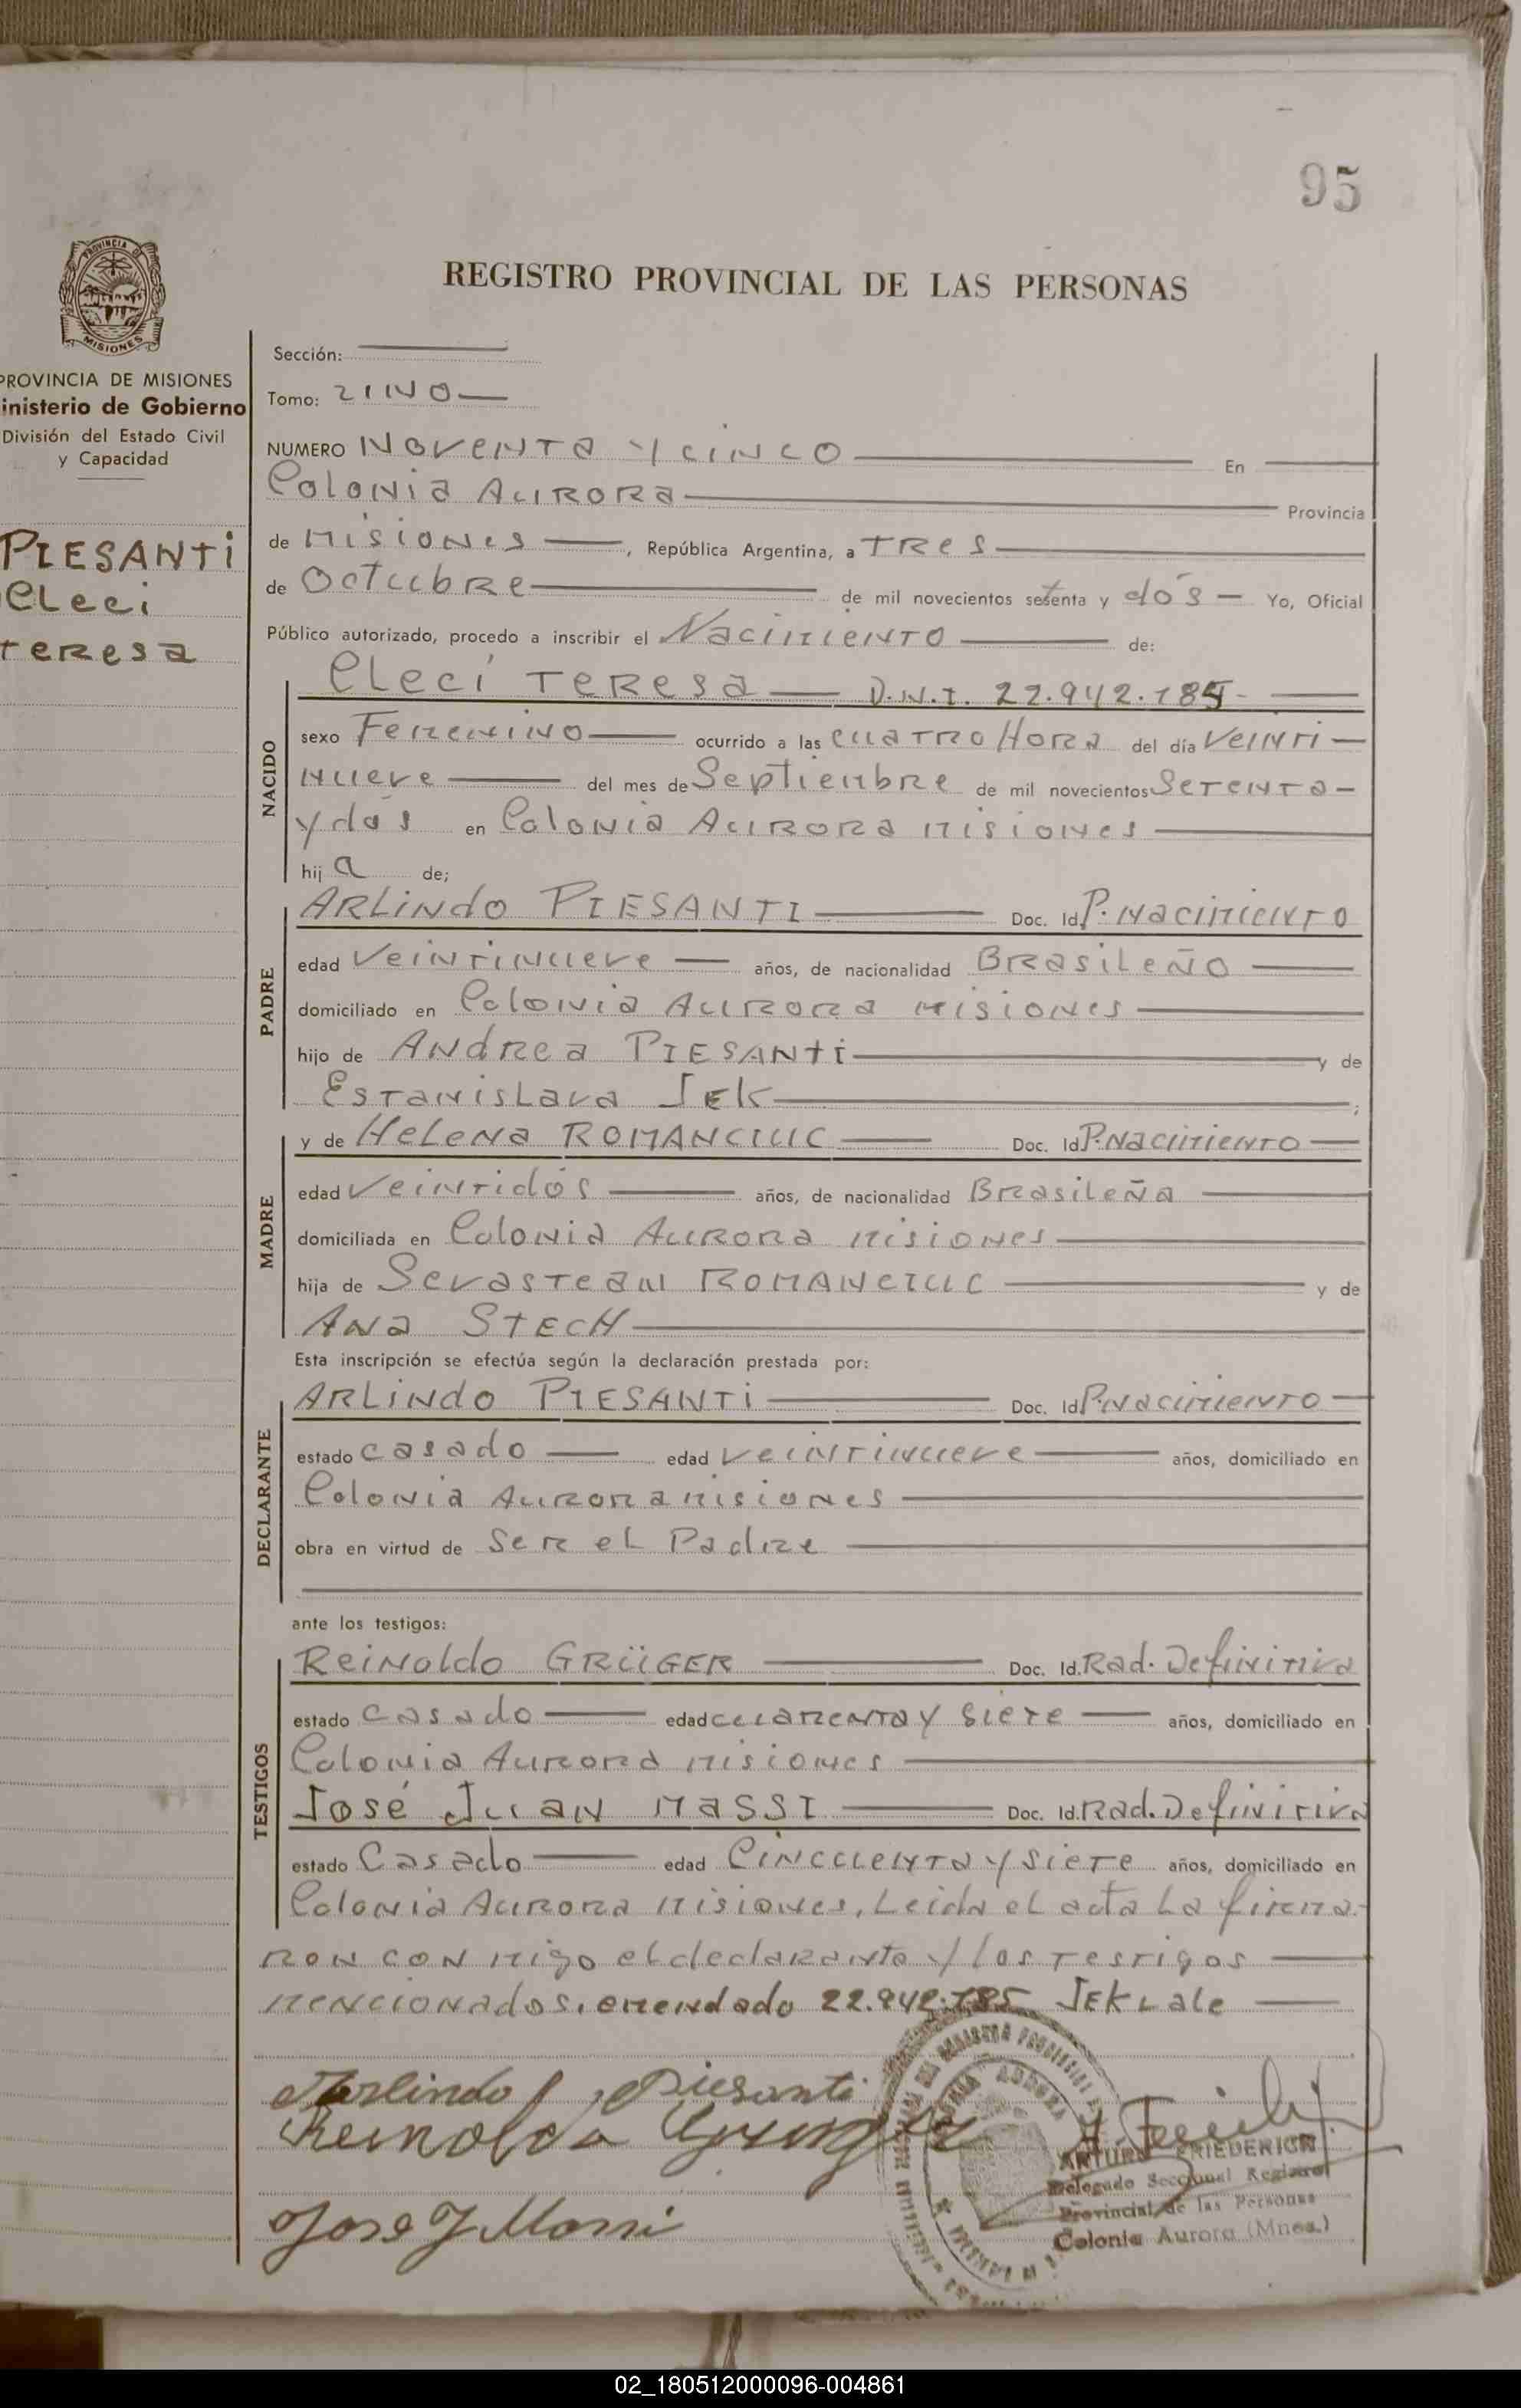 95
REGISTRO PROVINCIAL DE LAS PERSONAS
PROVINCIA DE
MISIONES
PROVINCIA DE MISIONES
inisterio de Gobierno
División del Estado Civil
y Capacidad
PIESANTI
eLeci
Teresa
Sección:
Tomo: 21NO
NUMERO NOVENTA Y CINCO En
Colonia AURORA Provincia
de Misiones, República Argentina, a TRes
de OCTUBRE de mil novecientos setenta y dós Yo, Oficial
Público autorizado, procedo a inscribir el Nacimiento de:
eLeci TeResa D.N.I. 22.942.185
NACIDO
sexo Femenino ocurrido a las cuatro Hora del día Veinti
nueve del mes de Septiembre de mil novecientos Setenta
y dós en Colonia Aurora misiones
hija de;
PADRE
ARLindo PIESANTI Doc. Id. P. Nacimiento
edad Veintinueve años, de nacionalidad BRasiLeÑo
domiciliado en Colonia Aurora misiones
hijo de Andrea PIESANti y de
EstanisLava JEK;
MADRE
y de HeLena ROMANCIUC Doc. Id P. Nacimiento
edad Veintidós años, de nacionalidad BRasiLeÑa
domiciliada en Colonia Aurora misiones
hija de Sevastean ROMANCIUC y de
Ana STECH
Esta inscripción se efectúa según la declaración prestada por:
DECLARANTE
ARLindo PIESANTi Doc. Id P. Nacimiento
estado casado edad veintinueve años, domiciliado en
Colonia Aurora misiones
obra en virtud de Ser eL Padre
ante los testigos:
TESTIGOS
Reinoldo GRÜGER Doc. Id. Rad. Definitiva
estado casado edad cuarenta y siete años, domiciliado en
Colonia Aurora misiones
José Juan MASSI Doc. Id. Rad. Definitiva
estado Casado edad Cincuenta y siete años, domiciliado en
Colonia Aurora misiones, Leida eL acta La firma-
ron con migo el declarante y los testigos
mencionados, emendado 22.942.185 JEK Lale
Arlindo Piesanti
Reinoldo
Jose J Massi
ARTURO FRIEDERICH
Delegado Seccional Registro
Provincial de las Personas
Colonia Aurora (Mnes.)
02_180512000096-004861